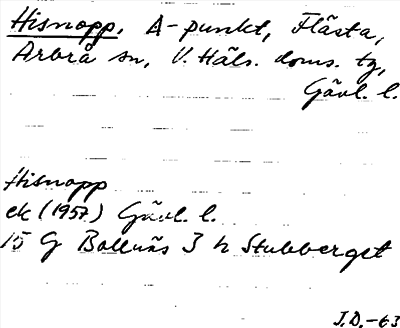 Hisnopp. A-punkt, Flästa,
Arbrå sn, V. Häls. doms. tg,
Gävl. l.
Hisnopp
ek (1957) Gävl. l.
15 G Bollnäs 3 h Stubberget
J.D.-63